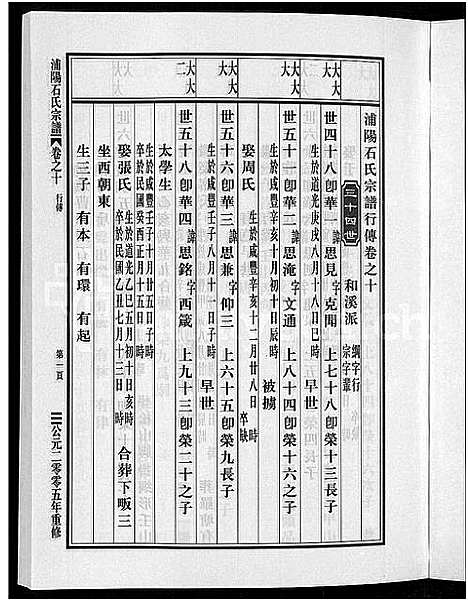 浦陽石氏宗譜行傳卷之十
三十四世 和溪派 綱字行 宗字輩
大大 世四十八卽華一 諱思見 字克聞 上七十八卽榮十三長子
生於道光庚戌八月十八日巳時 早世
大大 世五十一卽華二 諱思淹 字文通 上八十四卽榮十六之子
生於咸豐辛亥十月初十日辰時 被擄
娶周氏 生於咸豐辛亥十二月廿八日 時 卒缺
大大 世五十六卽華三 諱思兼 字仰三 上六十五卽榮九長子
生於咸豐壬子八月十一日子時 早世
大大二 世五十八卽華四 諱思銘 字西箴 上九十三卽榮二十之子
太學生 生於咸豐壬子十月廿五日子時 卒於民國癸酉正月十五日 時
娶張氏 生於道光乙巳五月初十日亥時 卒於民國乙丑七月十三日 時 合葬下畈三
坐西朝東
生三子 有本 有環 有起
浦陽石氏宗譜 卷之十 行傳 第一頁 公元二零零五年重修